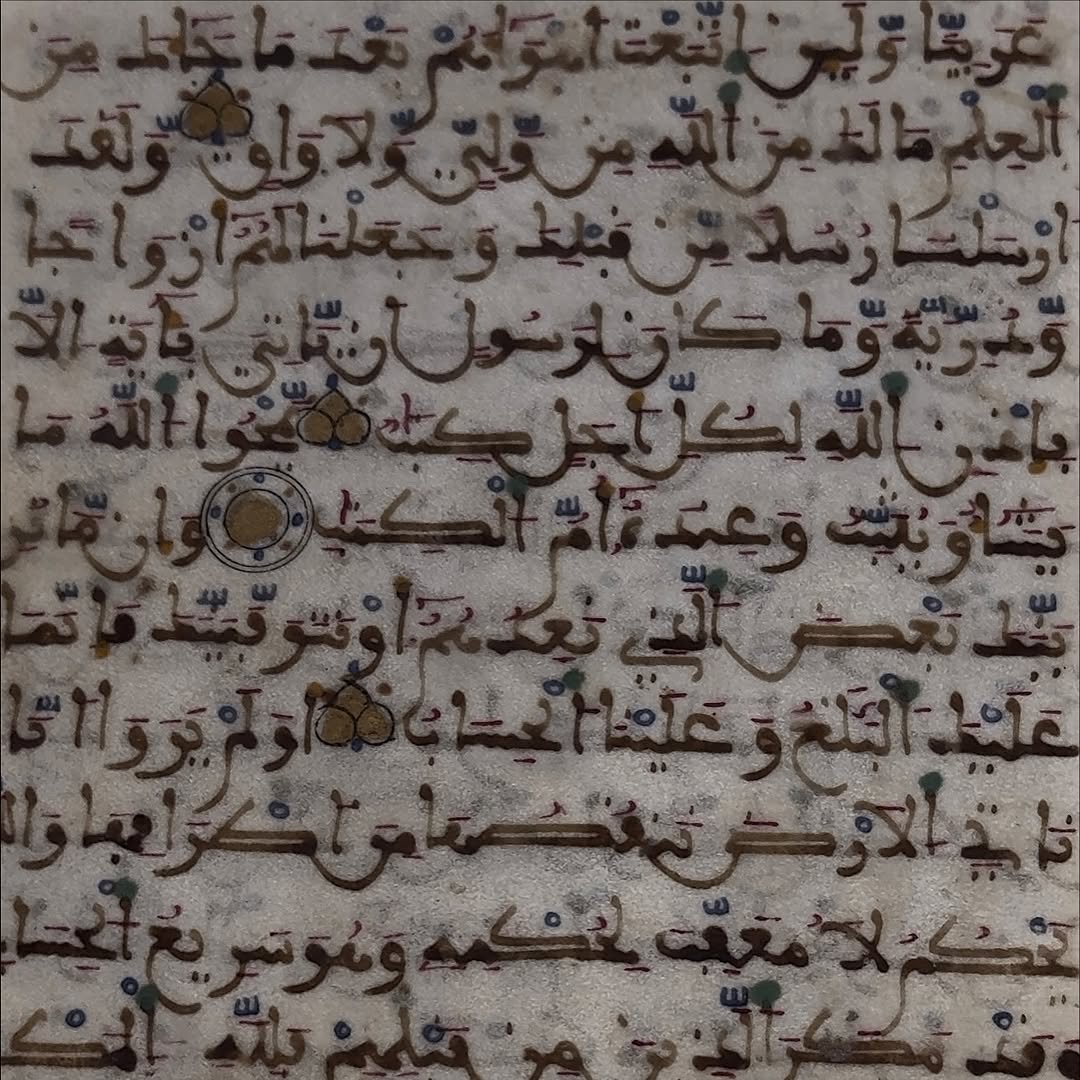 عَرَبِيّٗا وَلَئِنِ اِ۪تَّبَعْتَ أَهْوَآءَهُم بَعْدَ مَا جَآءَكَ مِنَ
اَ۬لْعِلْمِ مَا لَكَ مِنَ اَ۬للَّهِ مِنْ وَّلِيّٖ وَلَا وَاقٖ وَلَقَدَ
اَرْسَلْنَا رُسُلٗا مِّن قَبْلِكَ وَجَعَلْنَا لَهُمُۥٓ أَزْوَٰجٗا
وَّذُرِّيَّةٗ وَّمَا كَانَ لِرَسُولٍ اَنْ يَّاتِيَ بِـَٔايَةٍ اِلَّا
بِإِذْنِ اِ۬للَّهِ لِكُلِّ أَجَلٖ كِتَٰبٞ يَمْحُوا۟ اُ۬للَّهُ مَا
يَشَآءُ وَيُثَبِّتُ وَعِندَهُۥٓ أُمُّ اُ۬لْكِتَٰبِ وَإِن مَّا نُرِ
يَنَّكَ بَعْضَ اَ۬لذِي نَعِدُهُمُۥٓ أَوْ نَتَوَفَّيَنَّكَ فَإِنَّمَا
عَلَيْكَ اَ۬لْبَلَٰغُ وَعَلَيْنَا اَ۬لْحِسَابُ أَوَلَمْ يَرَوَا۟ اَنَّا
نَاتِي اِ۬لَارْضَ نَنقُصُهَا مِنَ اَطْرَافِهَا وَاللَّهُ
يَحْكُمُ لَا مُعَقِّبَ لِحُكْمِهِۦ وَهُوَ سَرِيعُ اُ۬لْحِسَابِ
وَقَدْ مَكَرَ اَ۬لذِينَ مِن قَبْلِهِمْ فَلِلهِ اِ۬لْمَكْرُ